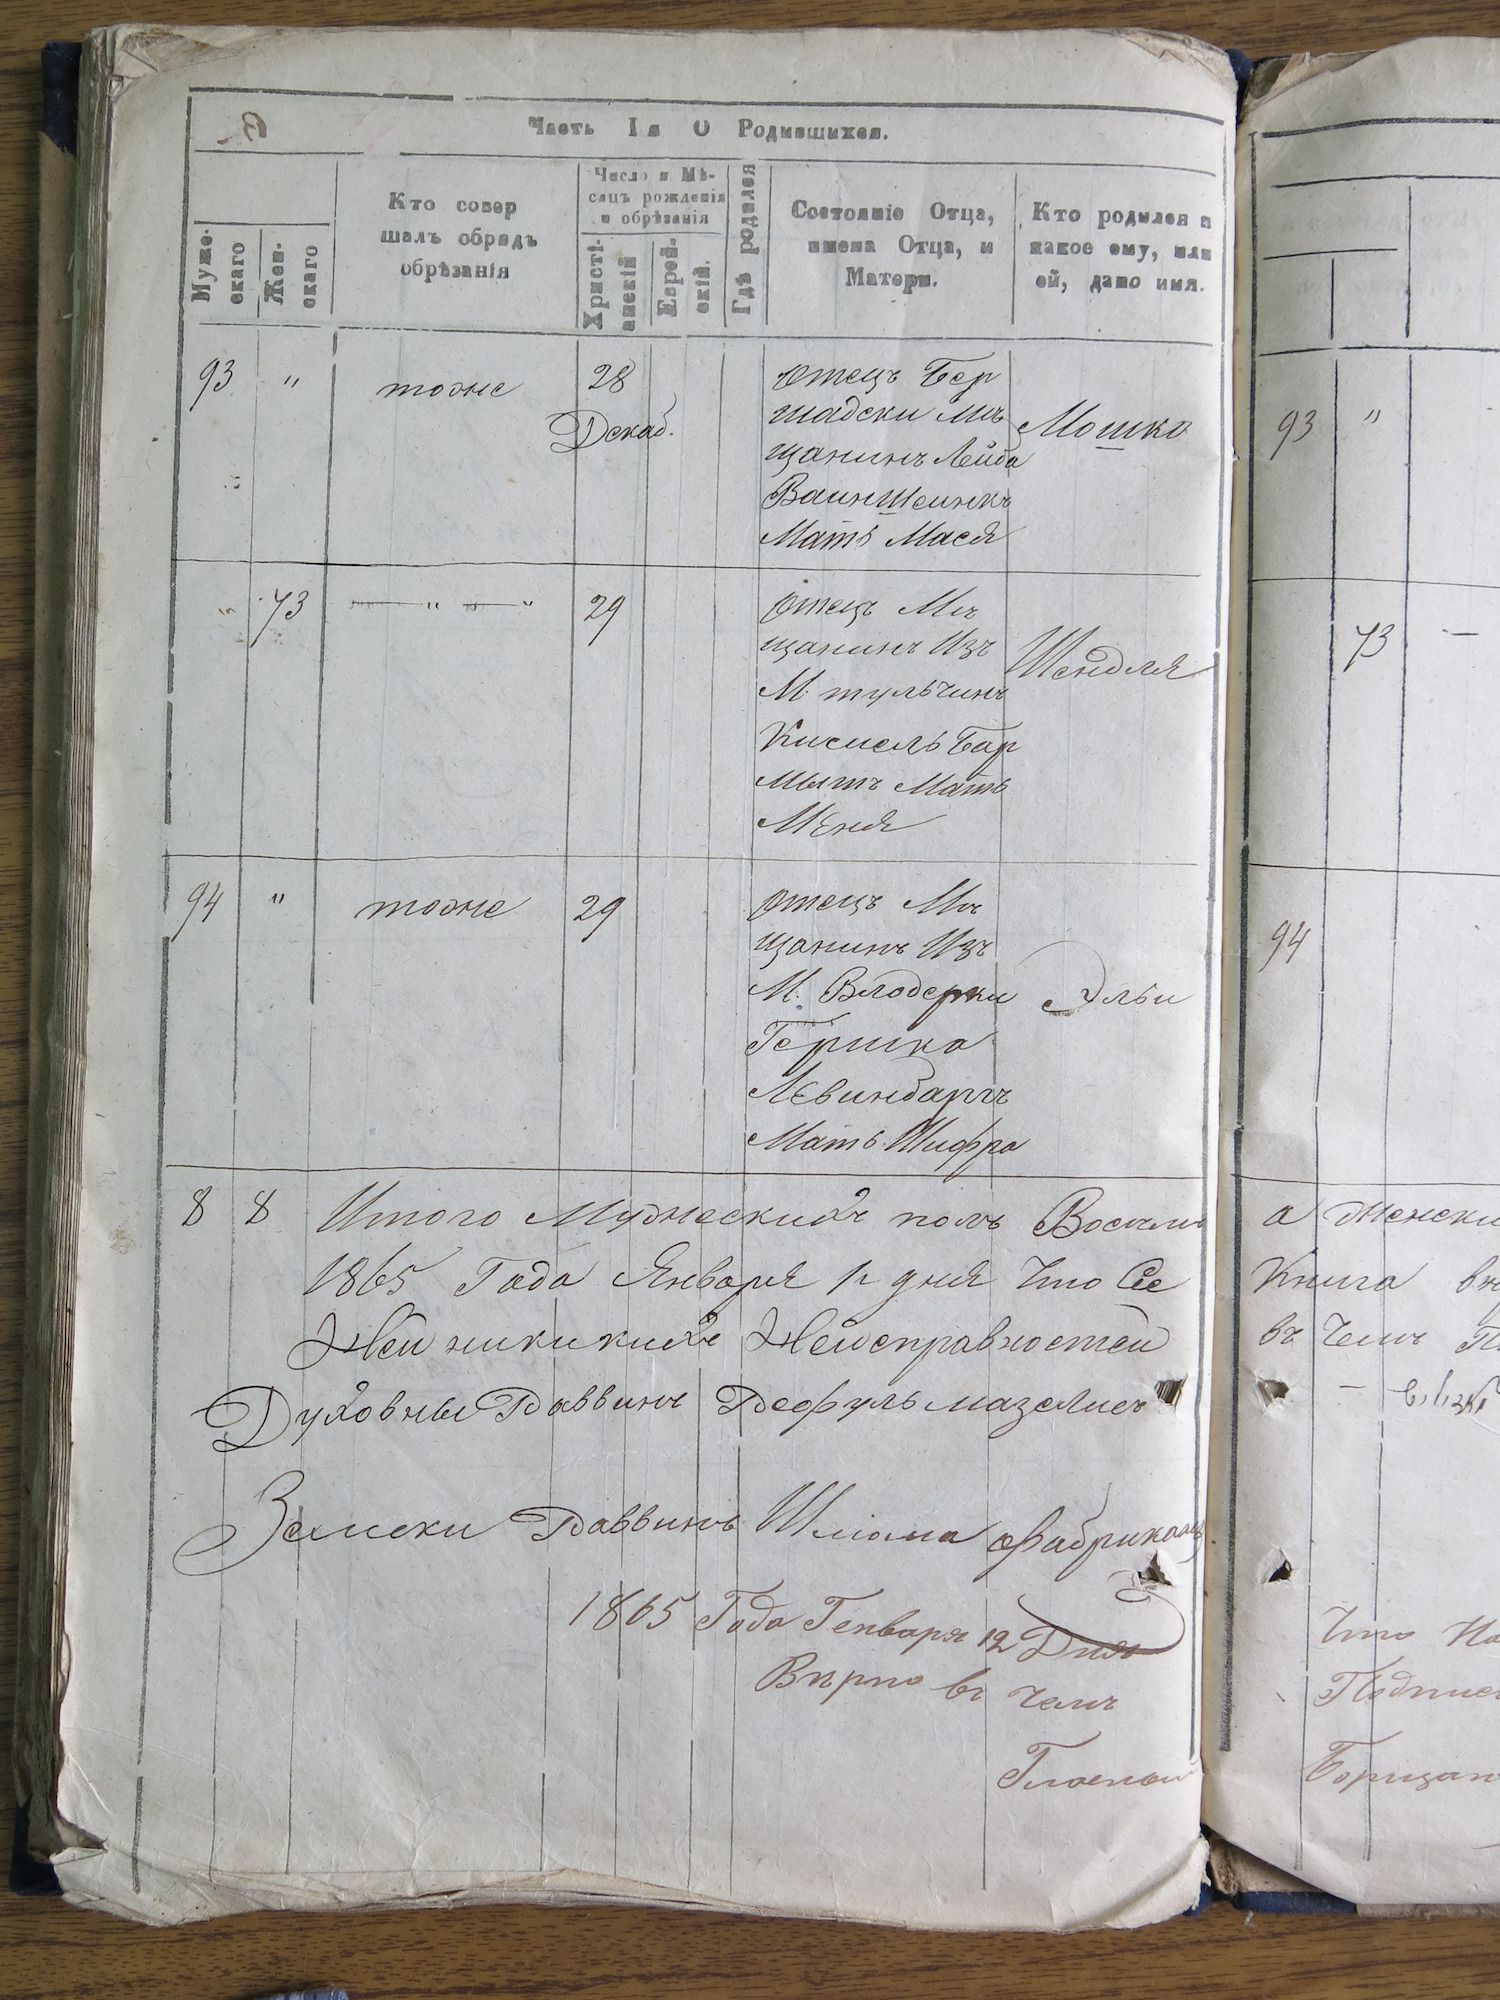 Часть Iя О Родившихся.
Мужескаго
Женскаго
Кто совершалъ обрядъ обрѣзанія
Число и Мѣсяцъ рожденія и обрѣзанія
Христіанскій
Еврейскій.
Гдѣ родился
Состояніе Отца, имена Отца, и Матери.
Кто родился и какое ему, или ей, дано имя.
93 " тоже 28 Декаб.
Отецъ Бер
шадски мѣ
щанинъ Лейба
Ваинштеинъ
Мать Мася
Мошко
" 73 — " — " 29
Отецъ Мѣ
щанинъ Изъ
М. тульчинъ
Кисиель Бар
мытъ Мать
Меня
Шендля
94 " тоже 29
Отецъ Мѣ
щанинъ Изъ
М. Влодерки
Гершко
Левинбаргъ
Мать Шифра
Эльи
8 8 Итого Мужескихъ полъ Восемь
1865 Года Января 1г дня Что Сее
Ней никикихъ Неисправностей
Духовны Раввинъ
Земски Раввинъ Шліома Фабрикантъ
1865 Года Генваря 12 Дня
Вѣрно въ чемъ
Гласный
93 "
73 —
94
а Женски
Книга
въ чемъ
Что
Подпис